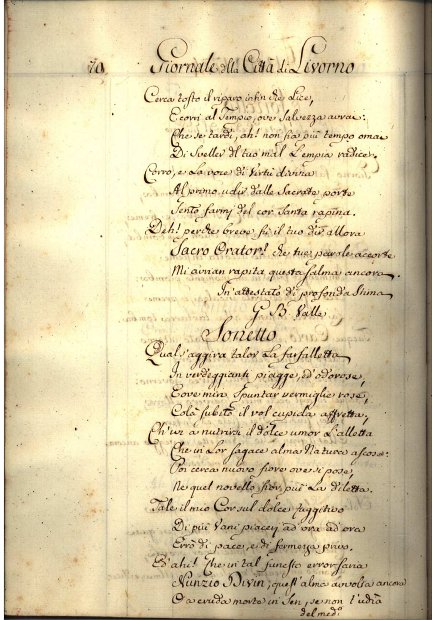 70 Giornale della Città di Livorno
Cerca tosto il riparo infin che lice,
E corri al Tempio, ove Salvezza avrai:
Che se tardi, ah! non fia più tempo omai
Di Sveller dal tuo mal L'empia radice.
Corro, e La voce di Virtù divina
Al primo udir dalle Sacrate porte
Sento farmi del cor Santa rapina.
Deh! perchè breve fù il tuo dir allora
Sacro Orator! che tue parole accorte
Mi avrian rapita questa Salma ancora
In attestato di profonda Stima
G. B. Valle
Sonetto
Qual s'aggira talor La farfalletta
In verdeggianti piagge, ed odorose,
E ove mira Spuntar vermiglie rose,
Colà Subito il vol cupida affretta,
Ch'ivi a nutrirsi il dolce umor L'alletta
Che in Lor Sagace alma Natura ascose:
Poi cerca nuovo fiore ove si pose,
Ne quel novello fior più La diletta.
Tale il mio Cor sul dolce fuggitivo
Di più Vani piaceri ad ora ad ora
Errò di pace, e di fermezza privo.
Ed ahi! Che in tal funesto error faria
Nunzio Divin, quest'alma avvolta ancora
O a cruda morte in Sen, se non t'udia
del med.º